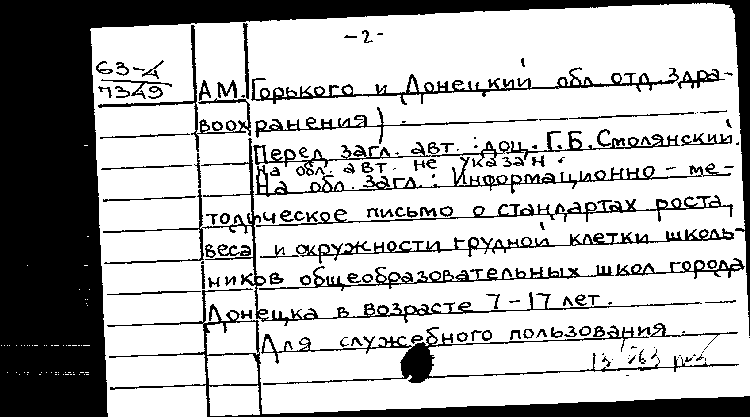 -2-
63-4
7349
А.М. Горького и Донецкий обл. отд. здра-
воохранения)
Перед загл. авт.: доц. Г.Б. Смолянский.
На обл. авт. не указан.
На обл. загл.: Информационно-ме-
тодическое письмо о стандартах роста,
веса и окружности грудной клетки школь-
ников общеобразовательных школ города
Донецка в возрасте 7-17 лет.
Для служебного пользования.